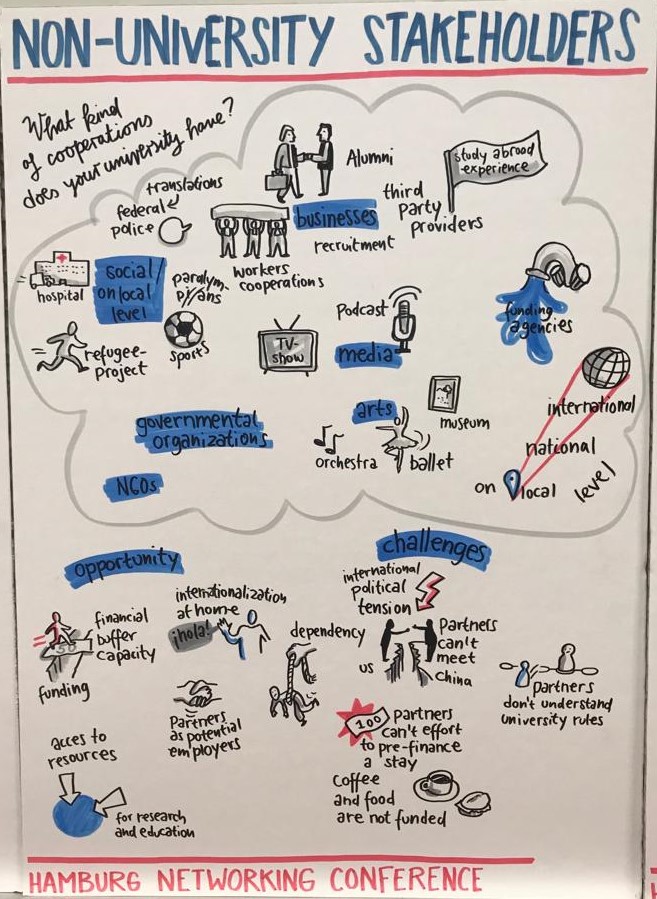 NON-UNIVERSITY STAKEHOLDERS
What kind
of cooperations
does your university have?
Alumni
study abroad
experience
translations
federal
police
businesses
third
party
providers
recruitment
workers
cooperations
hospital
social/
on local
level
paralym-
pians
refugee-
project
sports
TV-
show
Podcast
media
funding
agencies
governmental
organizations
NGOs
arts
museum
orchestra
ballet
international
national
on local level
opportunity
financial
buffer
capacity
50
funding
internationalization
at home
¡hola!
Partners
as potential
employers
acces to
resources
for research
and education
challenges
international
political
tension
dependency
us
Partners
can't
meet
China
partners
don't understand
university rules
100
partners
can't effort
to pre-finance
a stay
Coffee
and food
are not funded
HAMBURG NETWORKING CONFERENCE